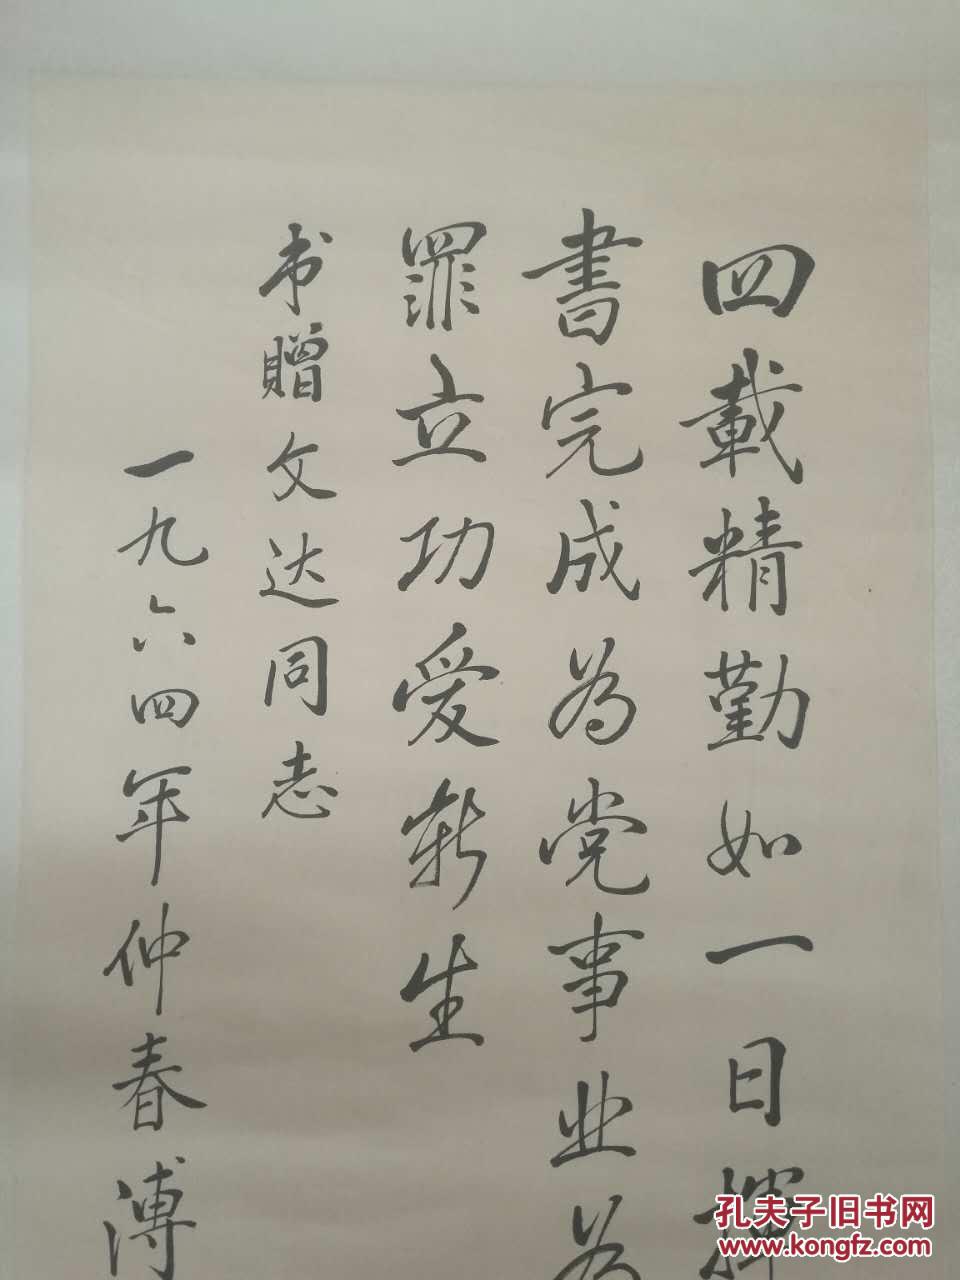 四載精勤如一日揮
書完成為党事业为
罪立功爱新生
书赠文达同志
一九六四年仲春溥
孔夫子旧书网
www.kongfz.com